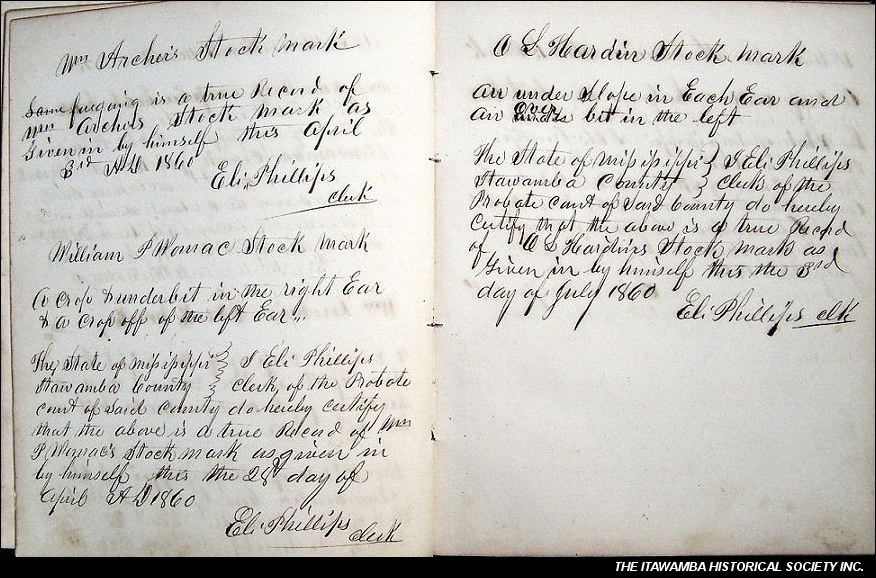 Wm Archers Stock mark
Same foregoing is a true Record of
Wm Archers Stock mark as
Given in by himself this April
3rd AD 1860
Eli Phillips
clerk
William P Womac Stock Mark
A crop & underbit in the right Ear
& a crop off of the left Ear
The State of Mississippi } I Eli Phillips
Itawamba County } Clerk of the Probate
court of Said County do hereby certify
that the above is a true Record of Wm
P Womac's Stock mark as given in
by himself this the 28th day of
April AD 1860
Eli Phillips clerk
O L Hardin Stock Mark
An under slope in Each Ear and
an over bit in the left
The State of Mississippi } I Eli Phillips
Itawamba County } clerk of the
Probate court of Said County do hereby
Certify that the above is a true Record
of O L Hardin's Stock mark as
Given in by himself this the 3rd
day of July 1860
Eli Phillips clk
THE ITAWAMBA HISTORICAL SOCIETY INC.